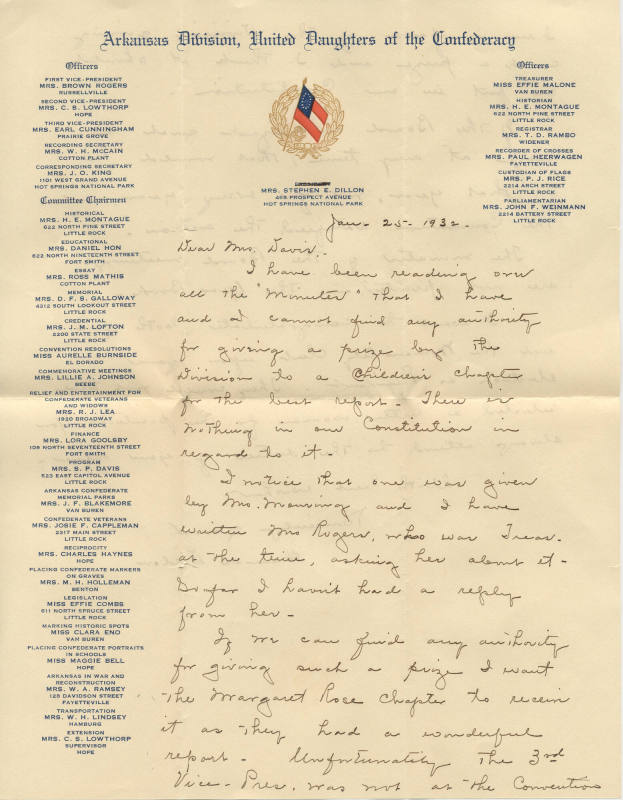 Arkansas Division, United Daughters of the Confederacy
Officers
FIRST VICE-PRESIDENT
MRS. BROWN ROGERS
RUSSELLVILLE
SECOND VICE-PRESIDENT
MRS. C. S. LOWTHORP
HOPE
THIRD VICE-PRESIDENT
MRS. EARL CUNNINGHAM
PRAIRIE GROVE
RECORDING SECRETARY
MRS. W. H. McCAIN
COTTON PLANT
CORRESPONDING SECRETARY
MRS. J. O. KING
1101 WEST GRAND AVENUE
HOT SPRINGS NATIONAL PARK
Committee Chairmen
HISTORICAL
MRS. H. E. MONTAGUE
622 NORTH PINE STREET
LITTLE ROCK
EDUCATIONAL
MRS. DANIEL HON
622 NORTH NINETEENTH STREET
FORT SMITH
ESSAY
MRS. ROSS MATHIS
COTTON PLANT
MEMORIAL
MRS. D. F. S. GALLOWAY
4312 SOUTH LOOKOUT STREET
LITTLE ROCK
CREDENTIAL
MRS. J. M. LOFTON
2200 STATE STREET
LITTLE ROCK
CONVENTION RESOLUTIONS
MISS AURELLE BURNSIDE
EL DORADO
COMMEMORATIVE MEETINGS
MRS. LILLIE A. JOHNSON
BEEBE
RELIEF AND ENTERTAINMENT FOR
CONFEDERATE VETERANS
AND WIDOWS
MRS. R. J. LEA
1920 BROADWAY
LITTLE ROCK
FINANCE
MRS. LORA GOOLSBY
109 NORTH SEVENTEENTH STREET
FORT SMITH
PROGRAM
MRS. S. P. DAVIS
523 EAST CAPITOL AVENUE
LITTLE ROCK
ARKANSAS CONFEDERATE
MEMORIAL PARKS
MRS. J. F. BLAKEMORE
VAN BUREN
CONFEDERATE VETERANS
MRS. JOSIE F. CAPPLEMAN
2317 MAIN STREET
LITTLE ROCK
RECIPROCITY
MRS. CHARLES HAYNES
HOPE
PLACING CONFEDERATE MARKERS
ON GRAVES
MRS. M. H. HOLLEMAN
BENTON
LEGISLATION
MISS EFFIE COMBS
611 NORTH SPRUCE STREET
LITTLE ROCK
MARKING HISTORIC SPOTS
MISS CLARA ENO
VAN BUREN
PLACING CONFEDERATE PORTRAITS
IN SCHOOLS
MISS MAGGIE BELL
HOPE
ARKANSAS IN WAR AND
RECONSTRUCTION
MRS. W. A. RAMSEY
125 DAVIDSON STREET
FAYETTEVILLE
TRANSPORTATION
MRS. W. H. LINDSEY
HAMBURG
EXTENSION
MRS. C. S. LOWTHORP
SUPERVISOR
HOPE
MRS. STEPHEN E. DILLON
465 PROSPECT AVENUE
HOT SPRINGS NATIONAL PARK
Officers
TREASURER
MISS EFFIE MALONE
VAN BUREN
HISTORIAN
MRS. H. E. MONTAGUE
622 NORTH PINE STREET
LITTLE ROCK
REGISTRAR
MRS. T. D. RAMBO
WIDENER
RECORDER OF CROSSES
MRS. PAUL HEERWAGEN
FAYETTEVILLE
CUSTODIAN OF FLAGS
MRS. P. J. RICE
2214 ARCH STREET
LITTLE ROCK
PARLIAMENTARIAN
MRS. JOHN F. WEINMANN
2214 BATTERY STREET
LITTLE ROCK
Jan - 25 - 1932 -
Dear Mrs. Davis,-
I have been reading over
all the "Minutes" that I have
and I cannot find any authority
for giving a prize by the
Division to a Children's Chapter
for the best report - There is
nothing in our Constitution in
regard to it -
I notice that one was given
by Mrs. Manning and I have
written Mrs Rogers, who was Treas.
at the time, asking her about it -
So far I havn't had a reply
from her -
If we can find any authority
for giving such a prize I want
the Margaret Rose Chapter to receive
it as they had a wonderful
report - Unfortunately the 3rd
Vice-Pres. was not at the Convention